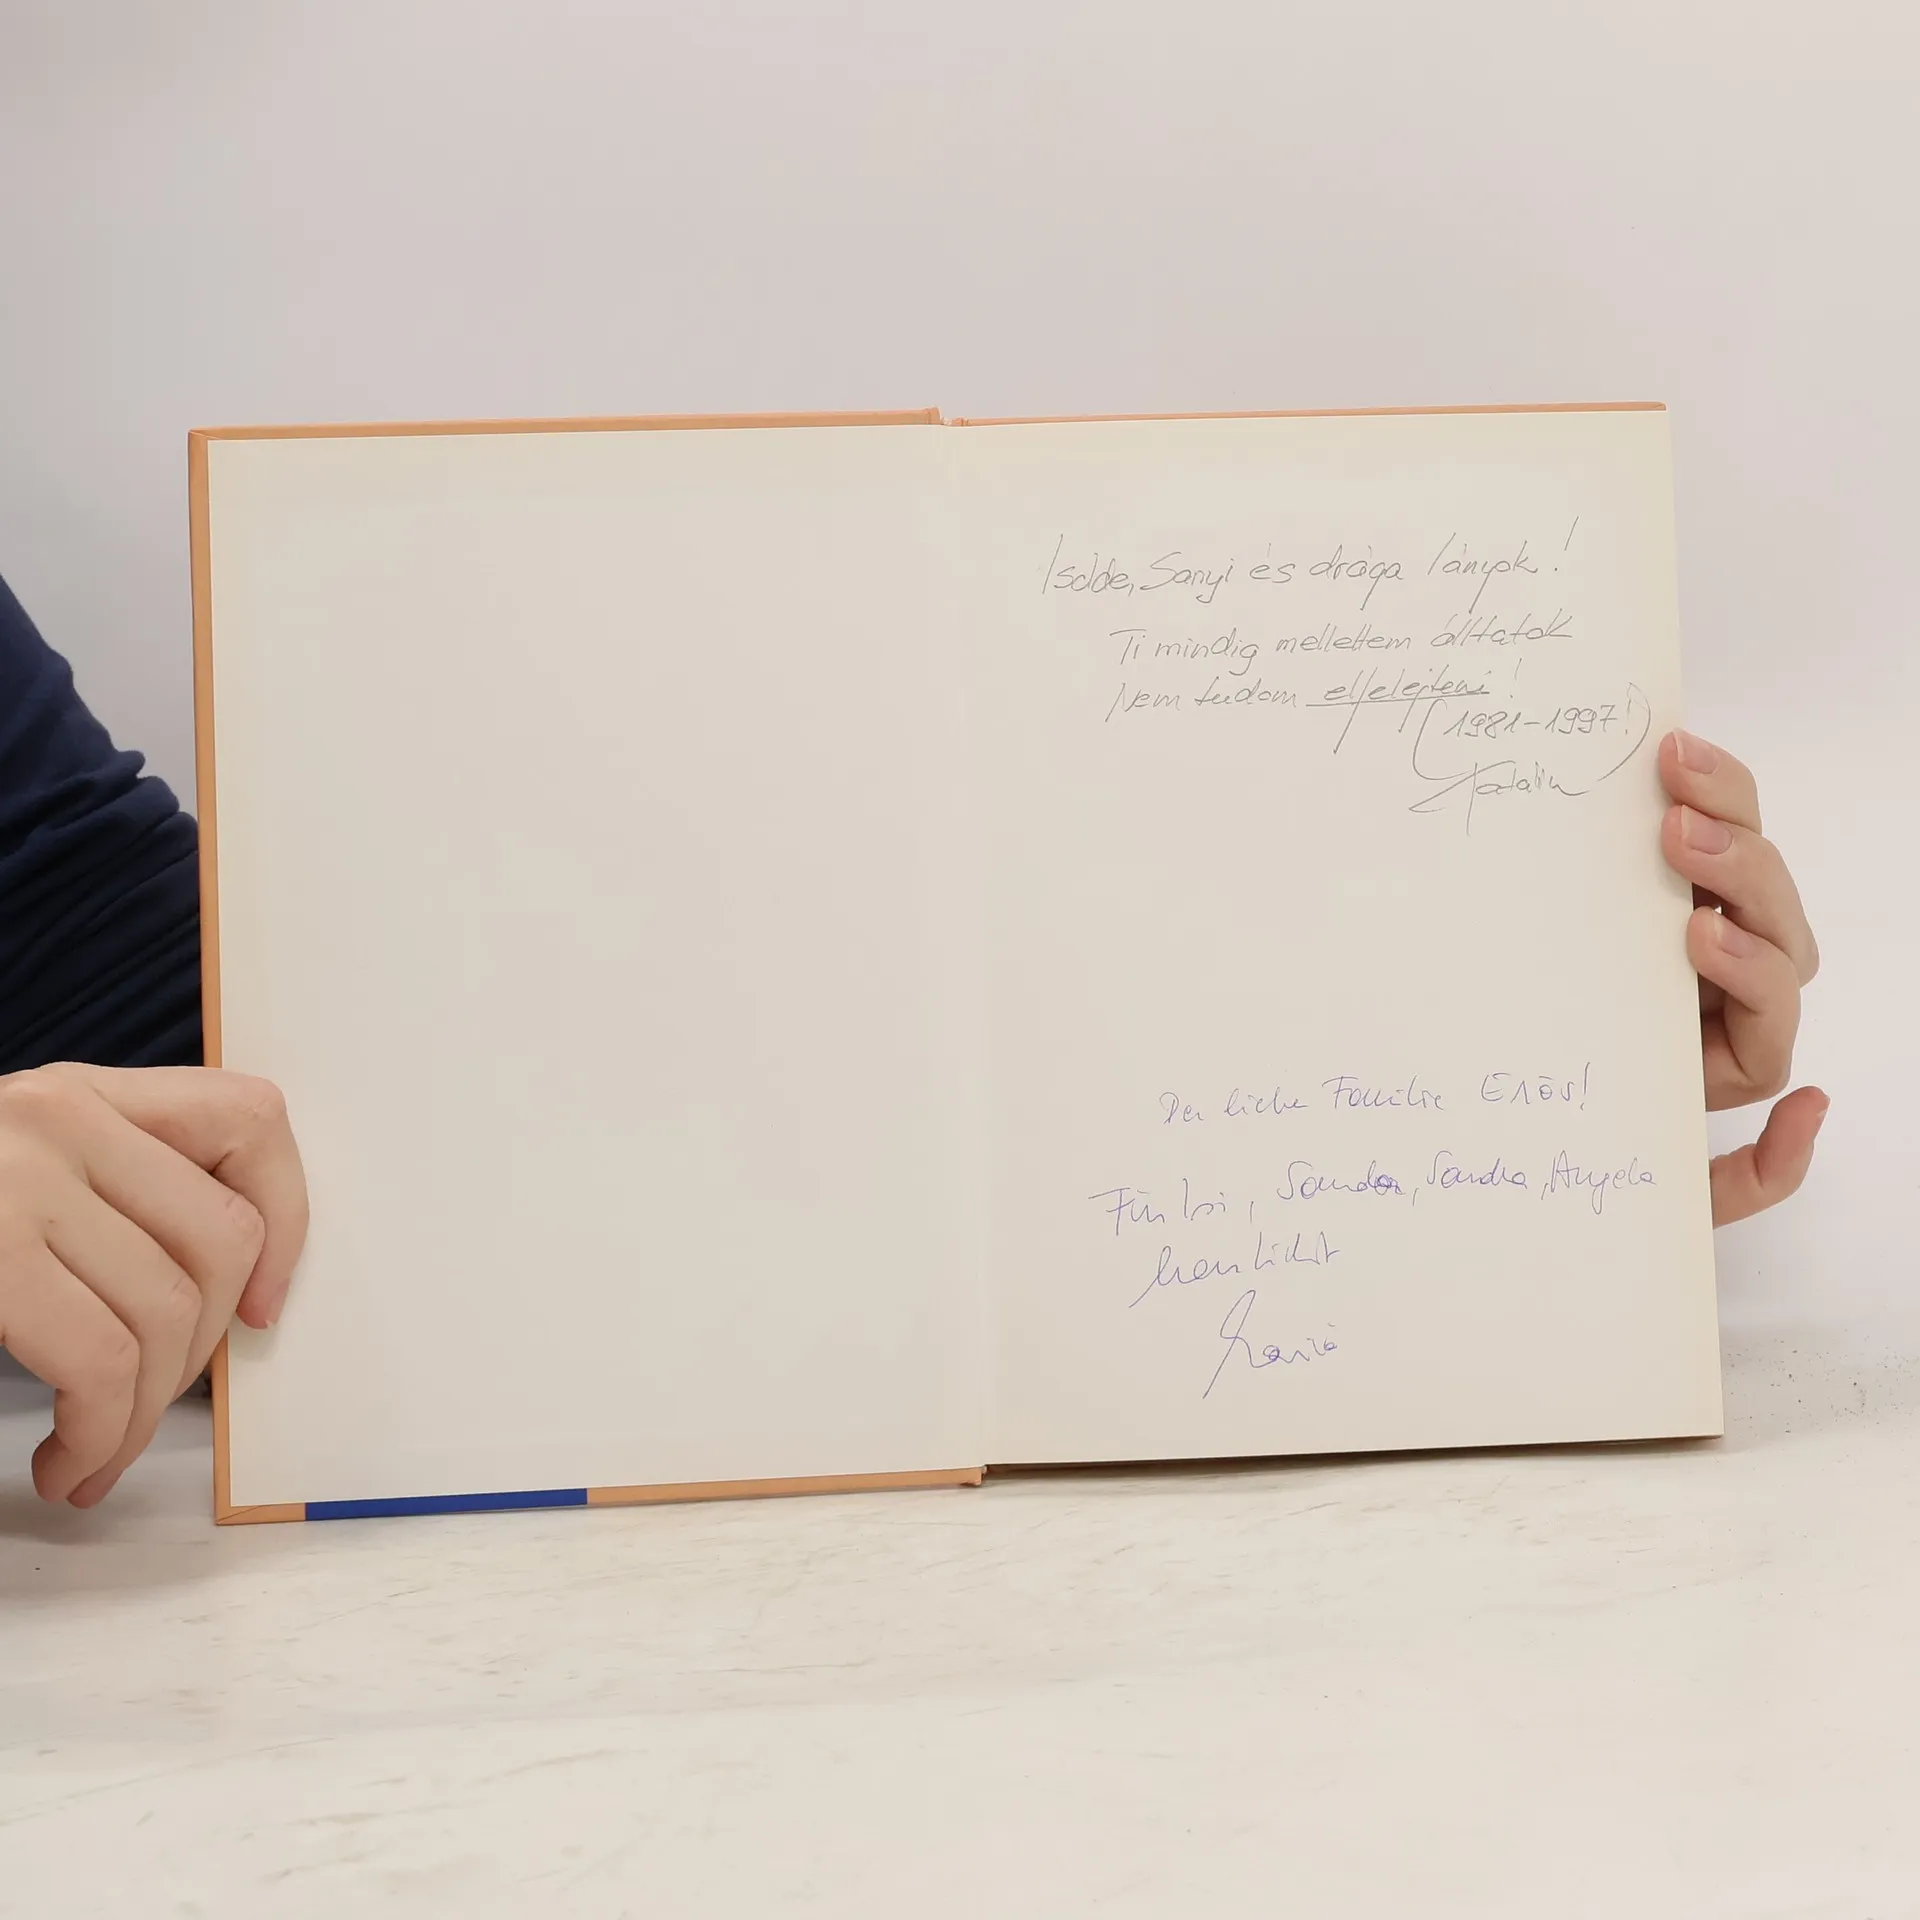 Isolde, Sanyi és drága lányok!
Ti mindig mellettem álltatok
Nem tudom elfelejteni!
(1981-1997!)
Katalin
Der liebe Familie Erős!
Für Isi, Sandor, Sandra, Angela
herzlichst
Mariá